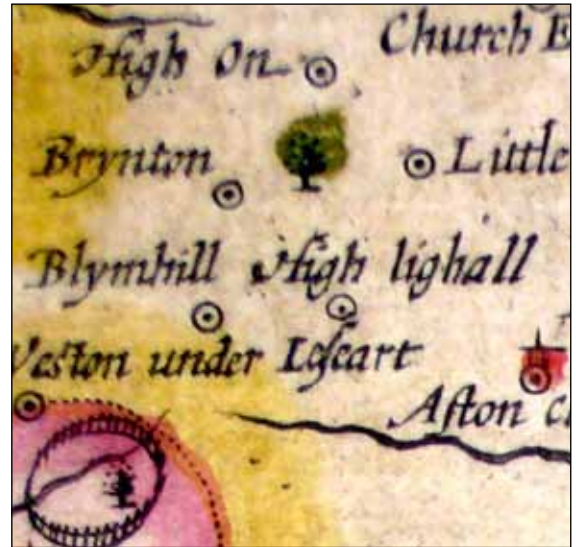 High On
Church E
Brynton
Little
Blymhill High lighall
Weston under Leseart
Aston c